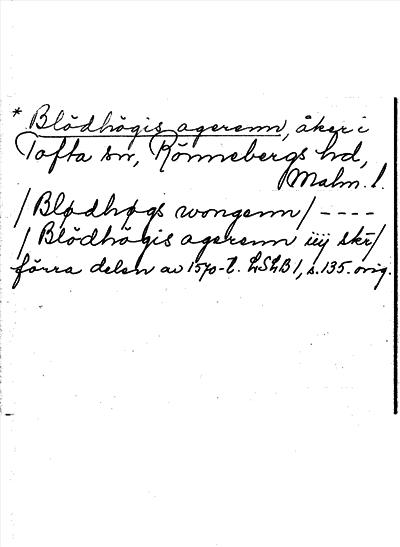 * Blödhögis agerenn, åker i
Tofta sn, Rönnebergs hd,
Malm. l.
/Blødhøgs wongenn/ ----
/Blödhögis agerenn iiij skr/
förra delen av 1570-t. LSLB 1, s. 135. orig.